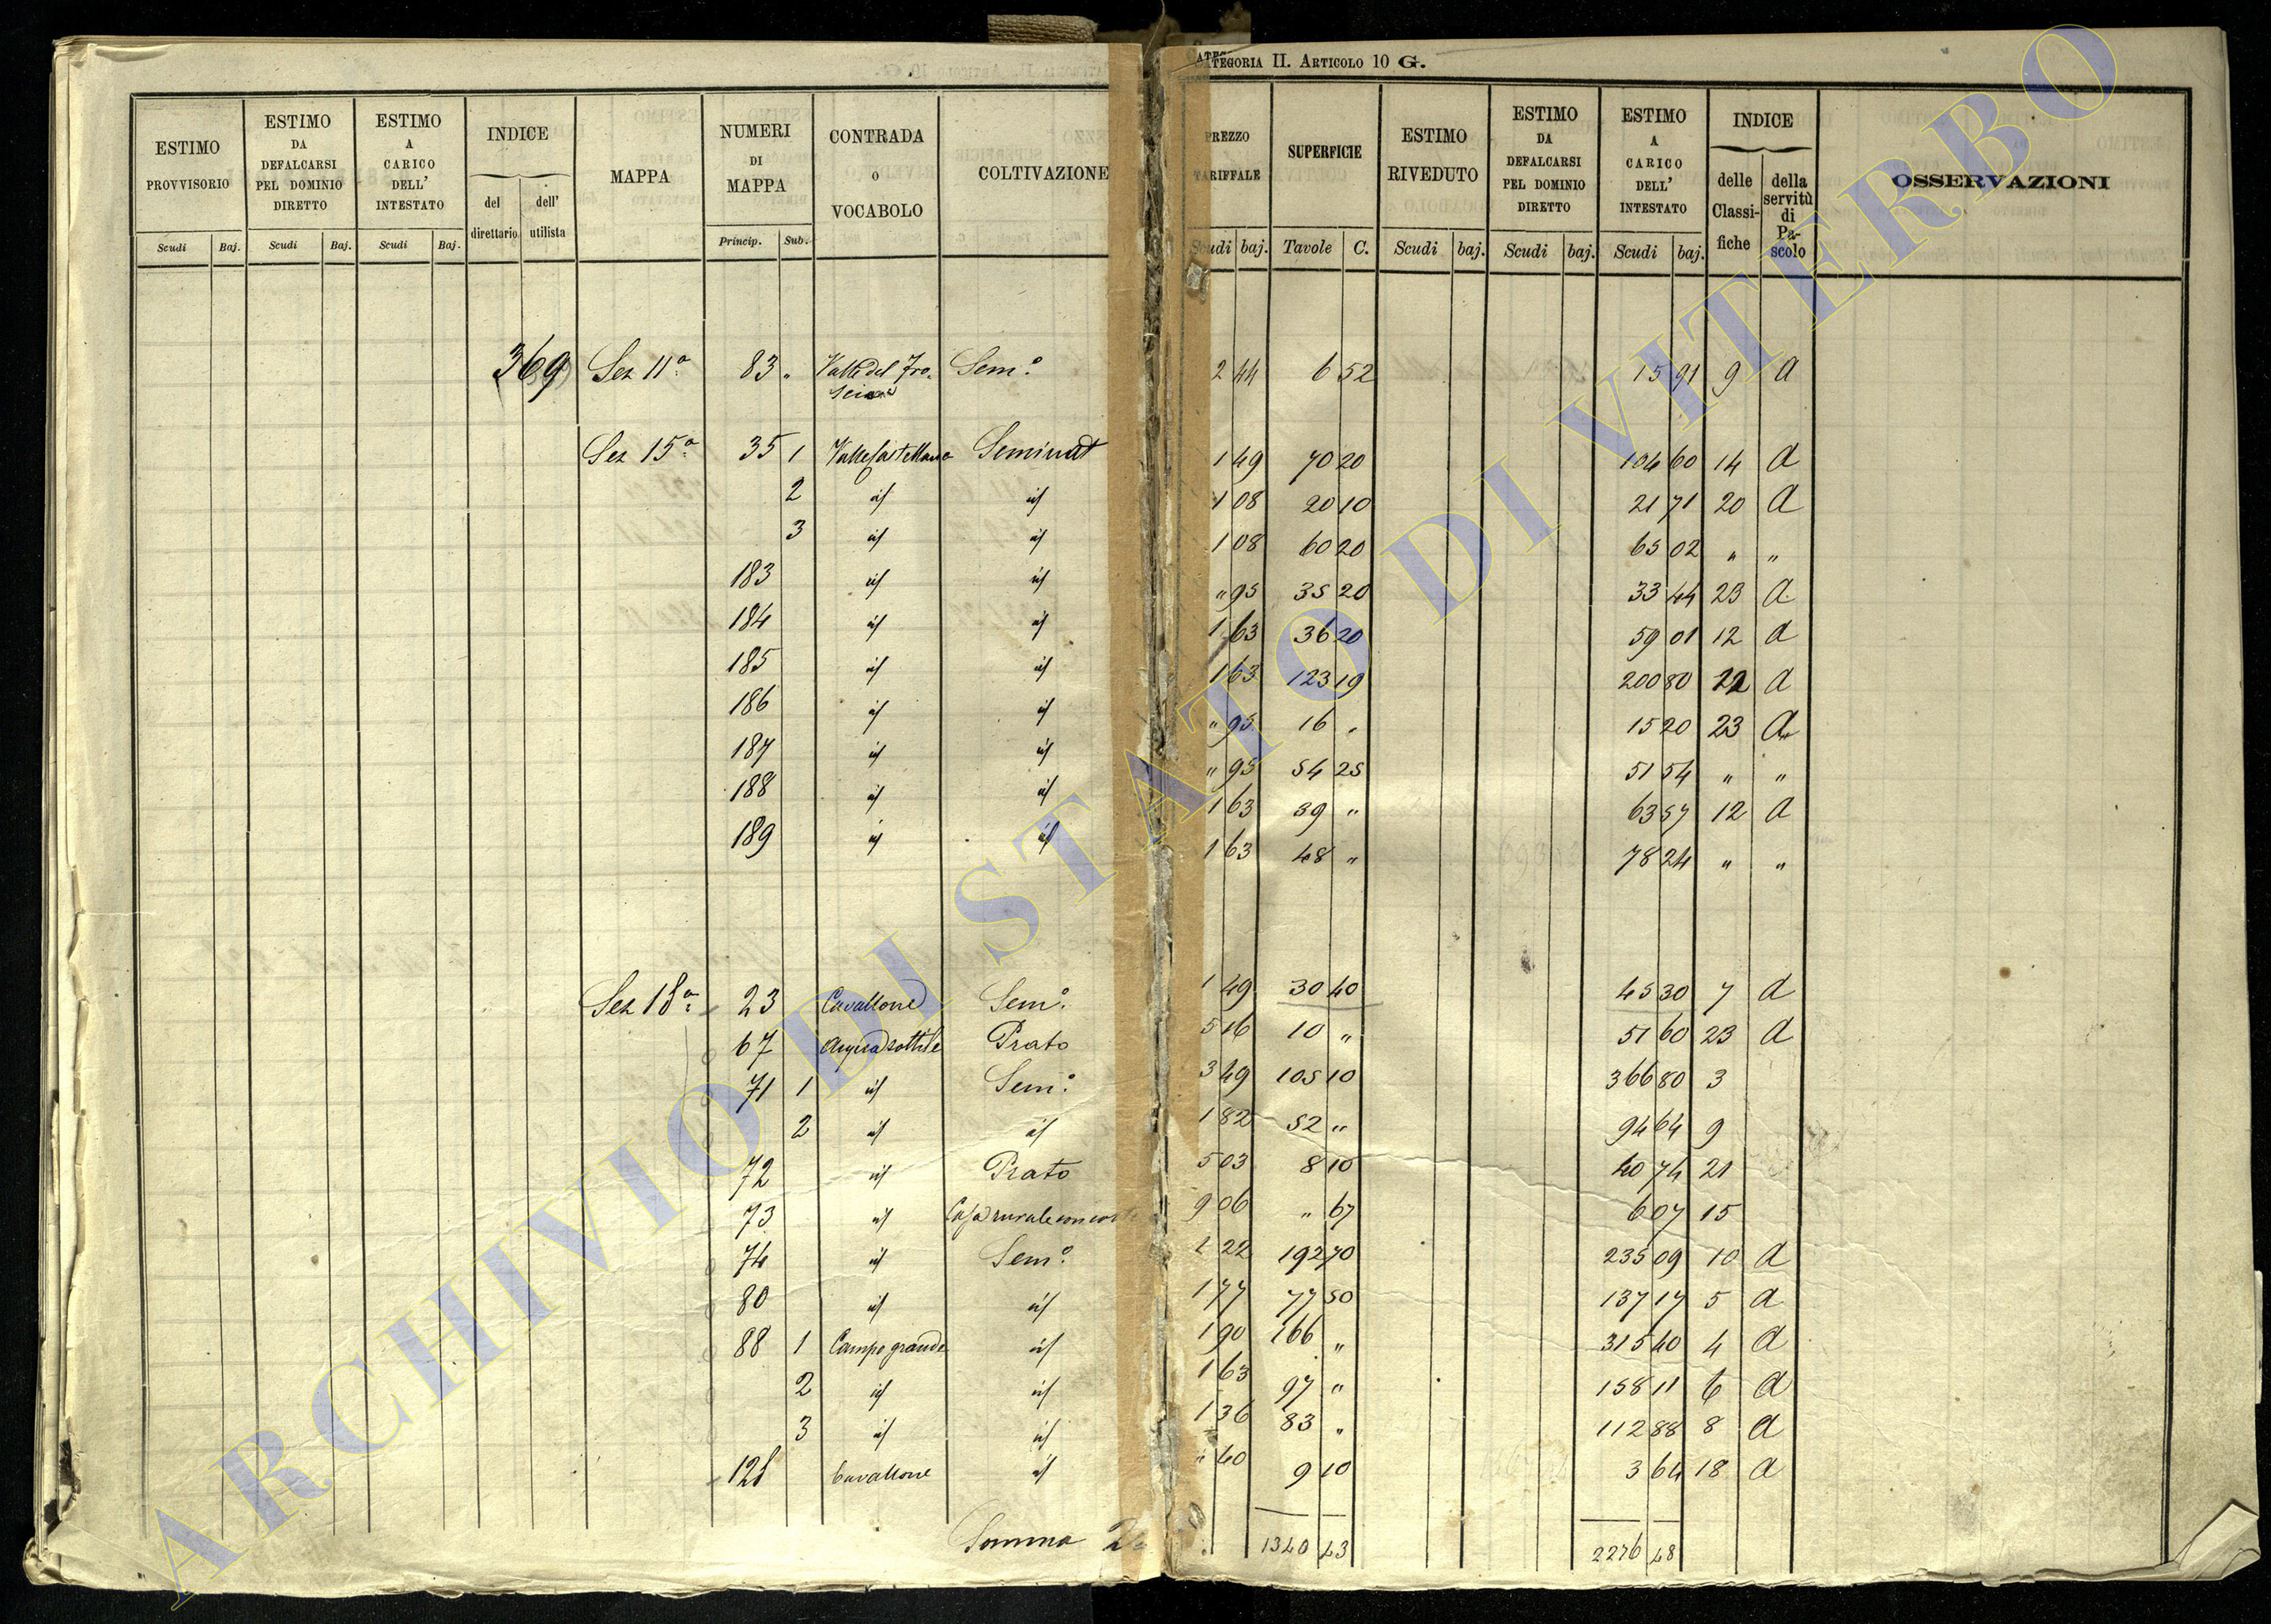 Categoria II. Articolo 10 G.
ESTIMO PROVVISORIO Scudi Baj.
ESTIMO DA DEFALCARSI PEL DOMINIO DIRETTO Scudi Baj.
ESTIMO A CARICO DELL' INTESTATO Scudi Baj.
INDICE del direttario dell' utilista
MAPPA
NUMERI DI MAPPA Princip. Sub.
CONTRADA o VOCABOLO
COLTIVAZIONE
PREZZO TARIFFALE Scudi baj.
SUPERFICIE Tavole C.
ESTIMO RIVEDUTO Scudi baj.
ESTIMO DA DEFALCARSI PEL DOMINIO DIRETTO Scudi baj.
ESTIMO A CARICO DELL' INTESTATO Scudi baj.
INDICE delle Classifiche della servitù di Pascolo
OSSERVAZIONI
369 Sez 11ª 83 " Valle del Fro- Sem.º 2 44 6 52 15 91 9 A
Sez 15ª 35 1 Seminat 1 49 70 20 104 60 14 A
2 id id 1 08 20 10 21 71 20 A
3 id id 1 08 60 20 65 02 " "
183 id id " 95 35 20 33 44 23 A
184 id id 1 63 36 20 59 01 12 A
185 id id 1 63 123 19 200 80 A
186 id id " 95 16 " 15 20 23 A
187 id id " 95 54 25 51 54 " "
188 id id 1 63 39 " 63 57 12 A
189 id id 1 63 48 " 78 24 " "
Sez 18ª 23 Cavallone Sem.º 1 49 30 40 45 30 7 A
67 Acquasottile Prato 5 16 10 " 51 60 23 A
71 1 id Sem.º 3 49 105 10 366 80 3
2 id id 1 82 52 " 94 64 9
72 id Prato 5 03 8 10 40 74 21
73 id Casa rurale con corte 9 06 " 67 6 07 15
74 id Sem.º 1 22 192 70 235 09 10 A
80 id id 1 77 77 50 137 17 5 A
88 1 Campo grande id 1 90 166 " 315 40 4 A
2 id id 1 63 97 " 158 11 6 A
3 id id 1 36 83 " 112 88 8 A
128 Cavallone id " 40 9 10 3 64 18 A
Somma 1340 43 2276 48
ARCHIVIO DI STATO DI VITERBO